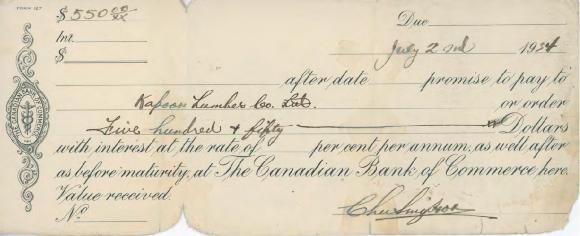 FORM 127
$ 550 00/xx
Int.
$
Due
July 2nd 1924
after date promise to pay to
Lumber Co. Ltd. or order
Five hundred & fifty Dollars
with interest at the rate of per cent per annum, as well after
as before maturity, at The Canadian Bank of Commerce here.
Value received.
No
THE CANADIAN BANK OF COMMERCE